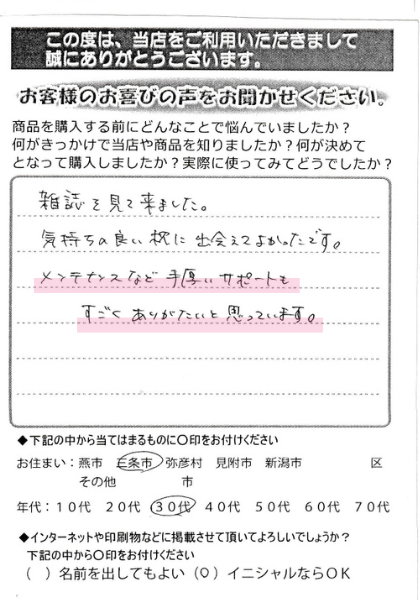 この度は、当店をご利用いただきまして
誠にありがとうございます。
お客様のお喜びの声をお聞かせください。
商品を購入する前にどんなことで悩んでいましたか？
何がきっかけで当店や商品を知りましたか？何が決めて
となって購入しましたか？実際に使ってみてどうでしたか？
雑誌を見て来ました。
気持ちの良い枕に出会えてよかったです。
メンテナンスなど手厚いサポートも
すごくありがたいと思っています。
◆下記の中から当てはまるものに○印をお付けください
お住まい：燕市 三条市 弥彦村 見附市 新潟市 区
その他 市
年代：１０代 ２０代 ３０代 ４０代 ５０代 ６０代 ７０代
◆インターネットや印刷物などに掲載させて頂いてよろしいでしょうか？
下記の中から○印をお付けください
（ ）名前を出してもよい（○）イニシャルならＯＫ